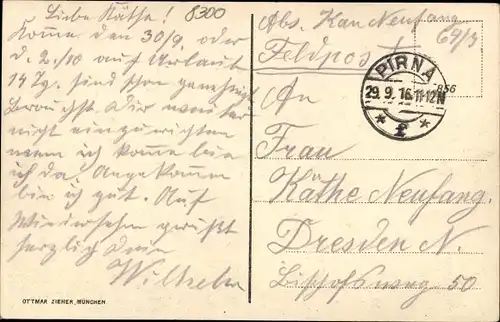 Liebe Käthe! 8300
Komme den 30/9. oder
d. 2./10 auf Urlaub
14 Tg. sind schon genehmigt
Brauchst Dir vorher
nicht einzurichten
wenn ich komme bin
ich da! Angekommen
bin ich gut. Auf
Wiedersehn grüßt
herzlich Dein
Wilhelm
OTTMAR ZIEHER, MÜNCHEN.
Abs. Kan Neufang
Feldpost 64/3
PIRNA
29. 9. 16. 11-12 N
* f *
856
An
Frau
Käthe Neufang.
Dresden N.
Bischofsweg 50